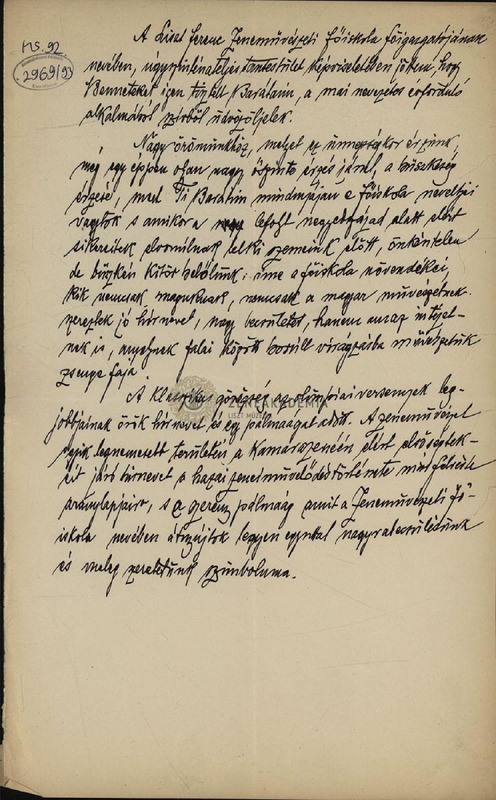 Ms. 92
2969/93
A Liszt Ferenc Zeneművészeti Főiskola főigazgatójának
nevében, úgyszintén a teljes tantestület képviseletében jöttem, hogy
Benneteket, igen tisztelt Barátaim, a mai nevezetes évforduló
alkalmából szívből üdvözöljelek.
Nagy örömünkhöz, melyet ez ünnepségkor érzünk,
még egy éppen olyan nagy őszinte érzés járul, a büszkeség
érzése, mert Ti Barátaim mindnyájan e főiskola neveltjei
vagytok s amikor a lefolyt negyedszázad alatt elért
sikereitek elvonulnak lelki szemeink előtt, önkéntelen
de büszkén kitör belőlünk: íme a főiskola növendékei,
kik nemcsak maguknak, nemcsak a magyar művészetnek
szereztek jó hírnevet, nagy becsületet, hanem annak az intézet-
nek is, amelynek falai között borult virágzásba művészetük
zsenge fája.
A klasszikus görögség az olimpiai versenyek leg-
jobbjainak örök hírnevet és egy pálmaágat adott. A zeneművészet
egyik legnemesebb területén a kamarazenéén elért elsőségtek-
kel járó hírnevet a hazai zeneművelődéstörténete már felvéste
aranylapjaira, s a szerény pálmaág amit a Zeneművészeti Fő-
iskola nevében átnyújtok legyen egyúttal nagyrabecsülésünk
és meleg szeretetünk szimboluma.
ZENEAKADÉMIA
LISZT MÚZEUM